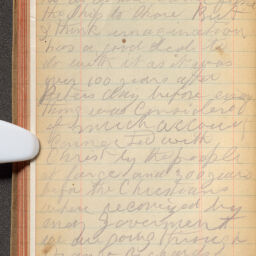 the ship to Rome. But
I think imagination
has a good deal to
do with it as it was
over 100 years after
Peters day before every
thing was considered
of much account
connected with
Christ by the people
at large and 300 years
before the Christians
where reconised by
any Government
we are going through